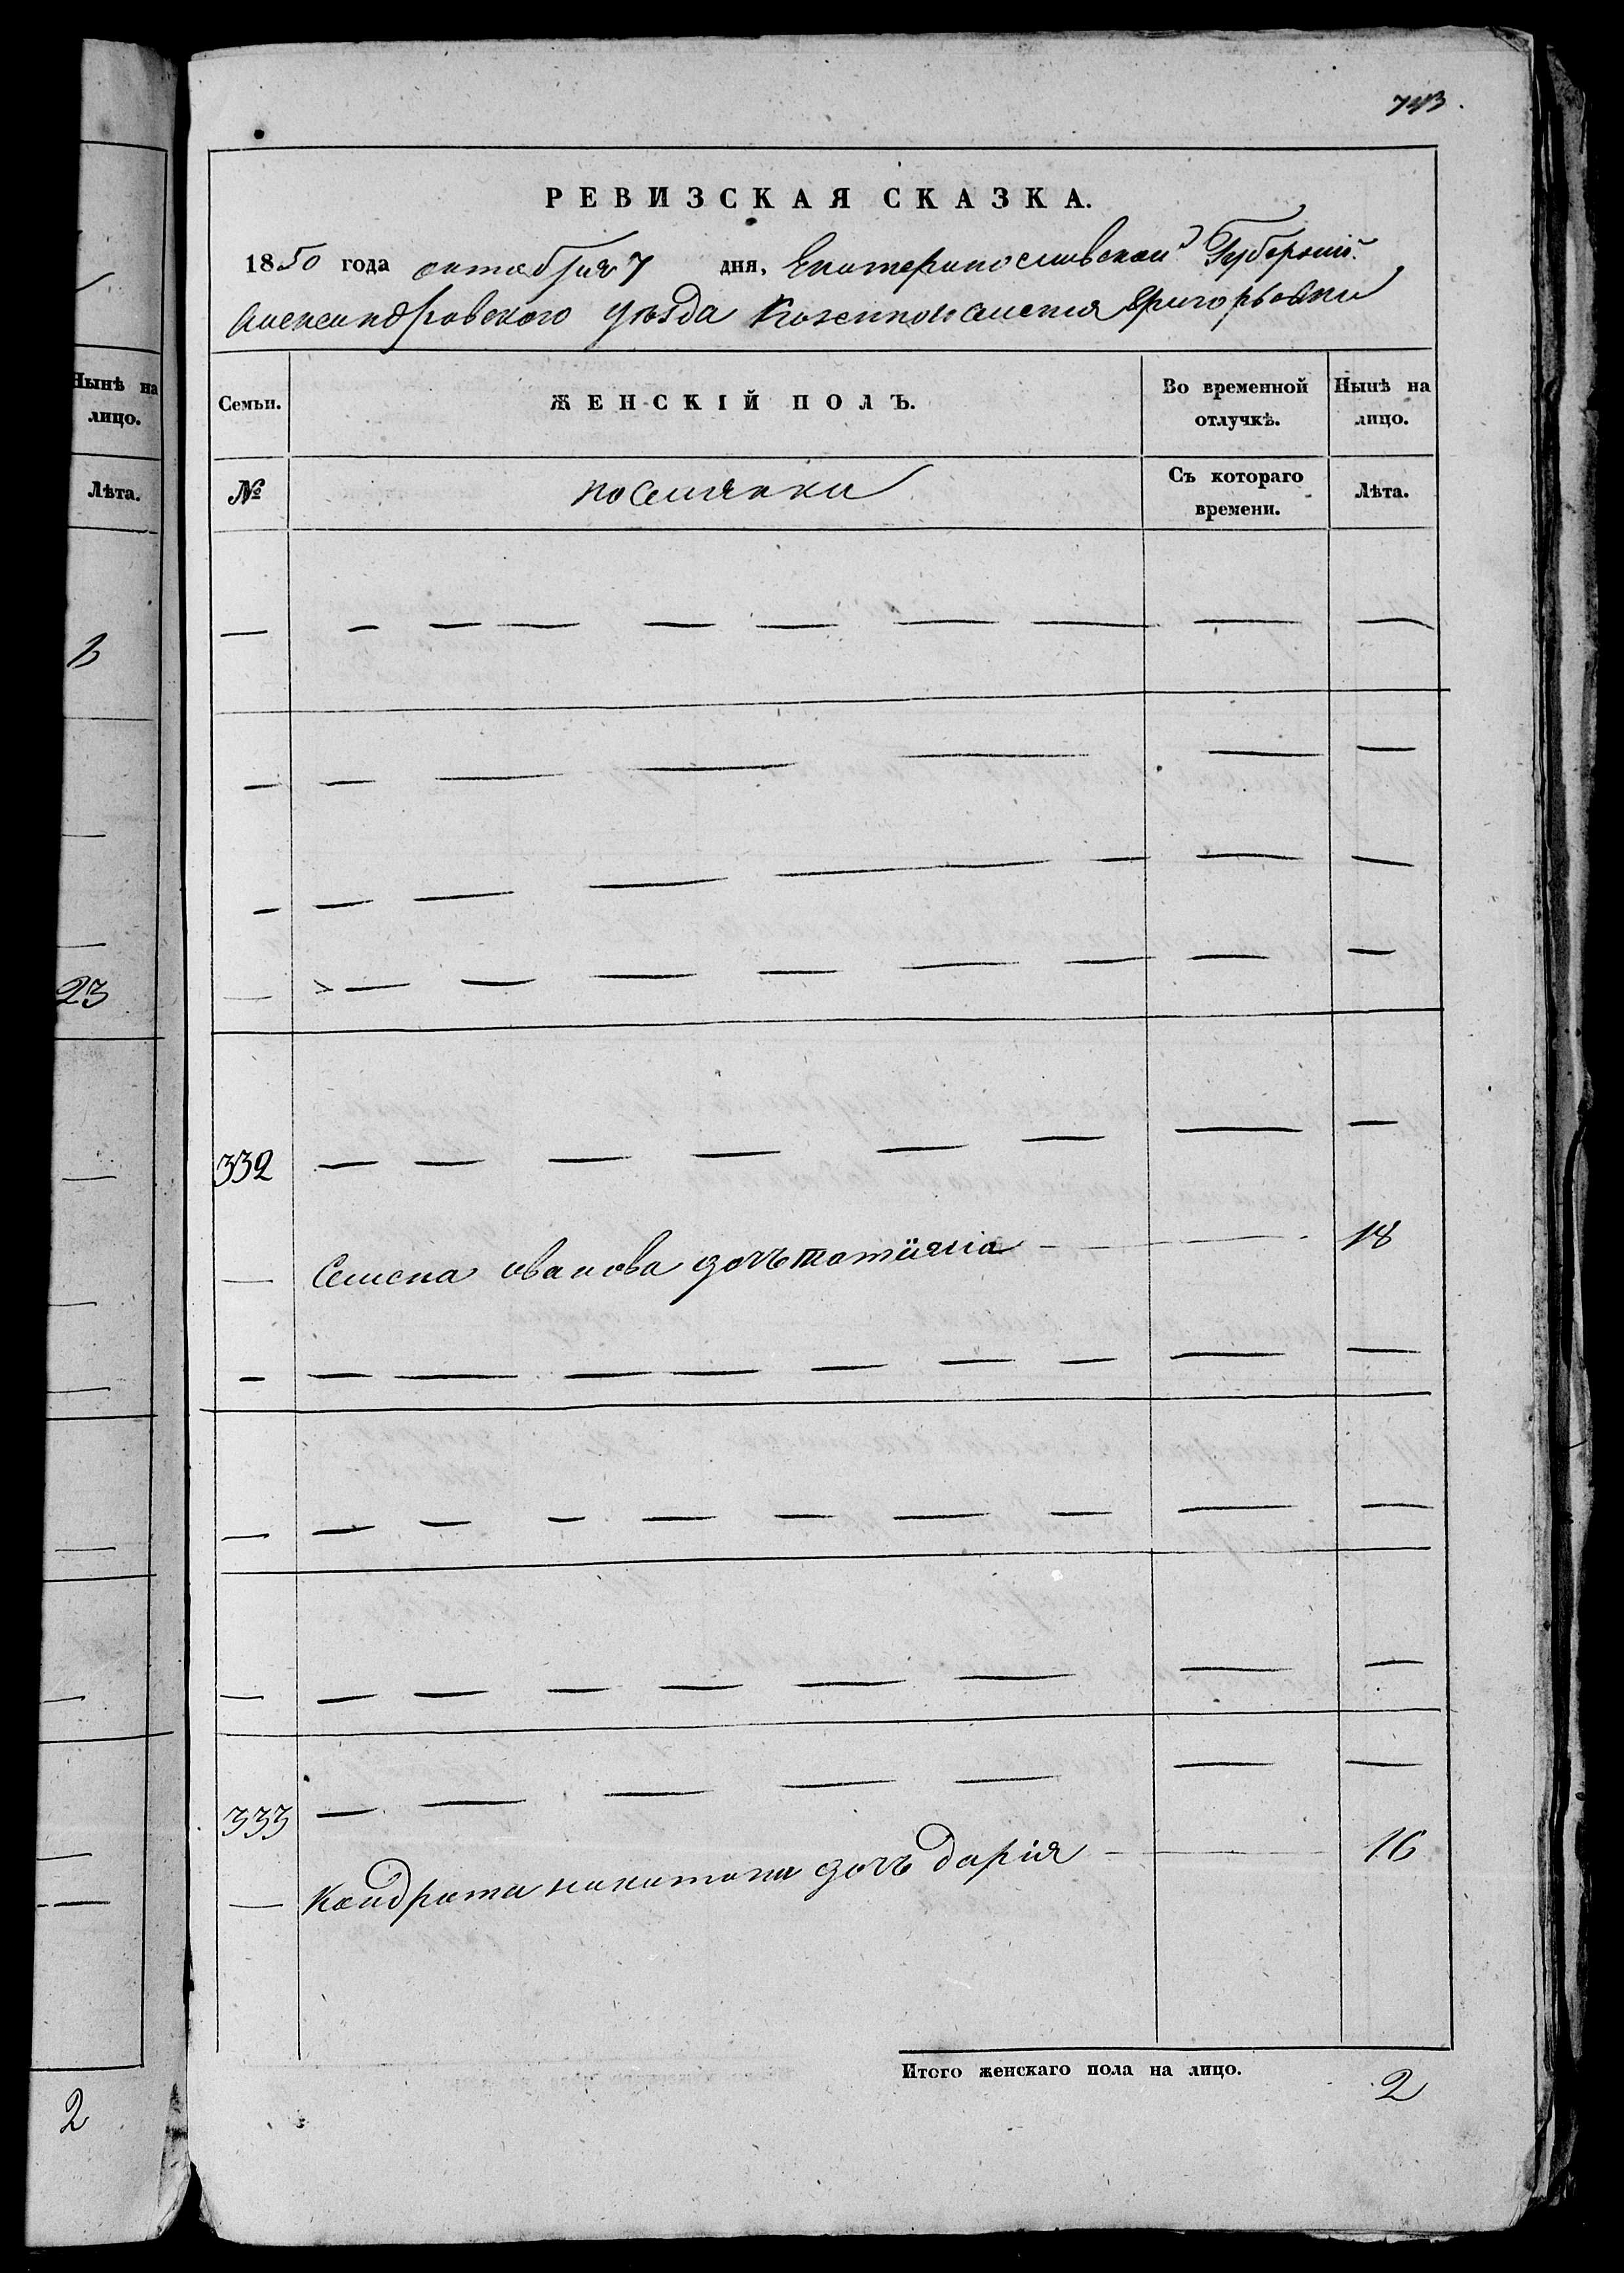 743.
РЕВИЗСКАЯ СКАЗКА.
1850 года октября 7 дня, Екатеринославской Губерніи
Александровского уѣзда Григорьовки
Нынѣ на лицо.
Лѣта.
23
2
Семьи.
ЖЕНСКІЙ ПОЛЪ.
Во временной отлучкѣ.
Нынѣ на лицо.
№
поселянки
Съ котораго времени.
Лѣта.
332
Семена иванова дочь татияна 18
333
Кондрата никитина дочь дарія 16
Итого женскаго пола на лицо. 2